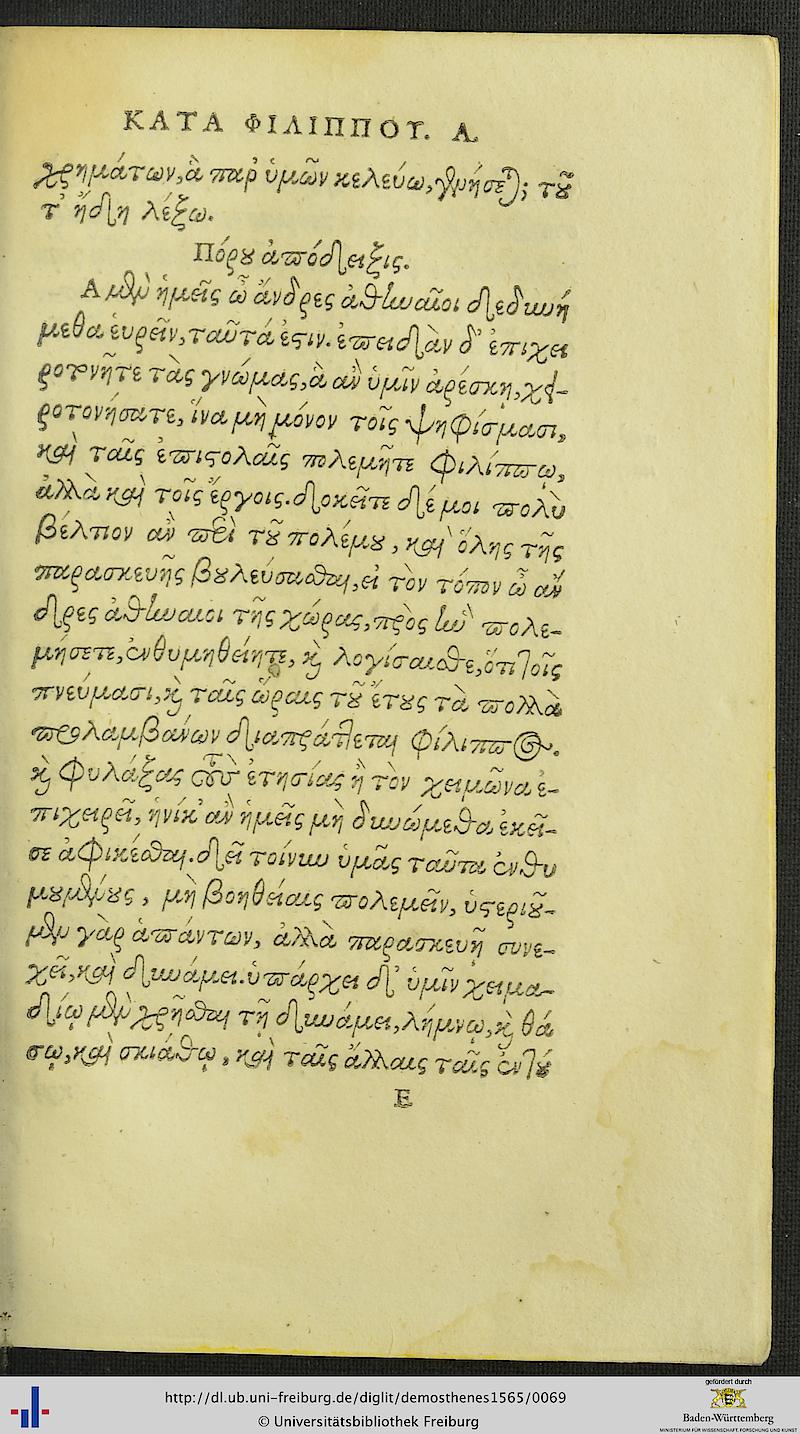 ΚΑΤΑ ΦΙΛΙΠΠΟΥ. Α.
χρημάτων, ἃ παρ' ὑμῶν κελεύω, γενήσεται; τοῦ
τ' ἤδη λέξω.
Πόρου ἀπόδειξις.
Α μὲν ἡμεῖς ὦ ἄνδρες ἀθηναῖοι δεδυνή
μεθα ἑυρεῖν, ταῦτά ἐστιν. ἐπειδὰν δ' ἐπιχει
ροτονῆτε τὰς γνώμας, ἃ ἂν ὑμῖν ἀρέσκη, χει-
ροτονήσατε, ἵνα μὴ μόνον τοῖς ψηφίσμασι,
καὶ ταῖς ἐπιστολαῖς πολεμῆτε φιλίππῳ,
ἀλλὰ καὶ τοῖς ἔργοις. δοκεῖτε δέ μοι πολὺ
βέλτιον ἂν περὶ τοῦ πολέμου, καὶ ὅλης τῆς
παρασκευῆς βουλεύσασθαι, εἰ τὸν τόπον ὦ ἄν
δρες ἀθηναῖοι τῆς χώρας, πρὸς ἣν πολε-
μήσετε, ἐνθυμηθείητε, καὶ λογίσαισθε, ὅτι τοῖς
πνεύμασι, καὶ ταῖς ὥραις τοῦ ἔτους τὰ πολλὰ
προλαμβάνων διαπράττεται φίλιππος.
καὶ φυλάξας τοὺς ἐτησίας ἢ τὸν χειμῶνα ἐ-
πιχειρεῖ, ἡνίκ' ἂν ἡμεῖς μὴ δυνώμεθα ἐκεῖ-
σε ἀφικέσθαι. δεῖ τοίνυν ὑμᾶς ταῦτα ἐνθυ
μουμένους, μὴ βοηθείαις πολεμεῖν, ὑστεριοῦ-
μεν γὰρ ἁπάντων, ἀλλὰ παρασκευῆ συνε-
χεῖ, καὶ δυνάμει. ὑπάρχει δ' ὑμῖν χειμα-
δίῳ μὲν χρῆσθαι τῆ δυνάμει, λήμνῳ, καὶ θά
σῳ, καὶ σκιάθῳ, καὶ ταῖς ἄλλαις ταῖς ἐν τού
E
gefördert durch
http://dl.ub.uni-freiburg.de/diglit/demosthenes1565/0069
© Universitätsbibliothek Freiburg
Baden-Württemberg
MINISTERIUM FÜR WISSENSCHAFT, FORSCHUNG UND KUNST